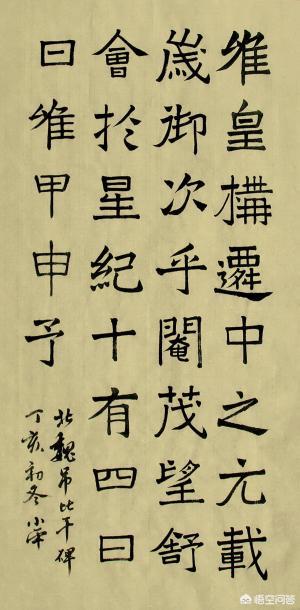 維皇構遷中之元載
歲御次乎閹茂望舒
會於星紀十有四日
日維甲申予
北魏吊比干碑
丁亥初冬小华
悟空问答